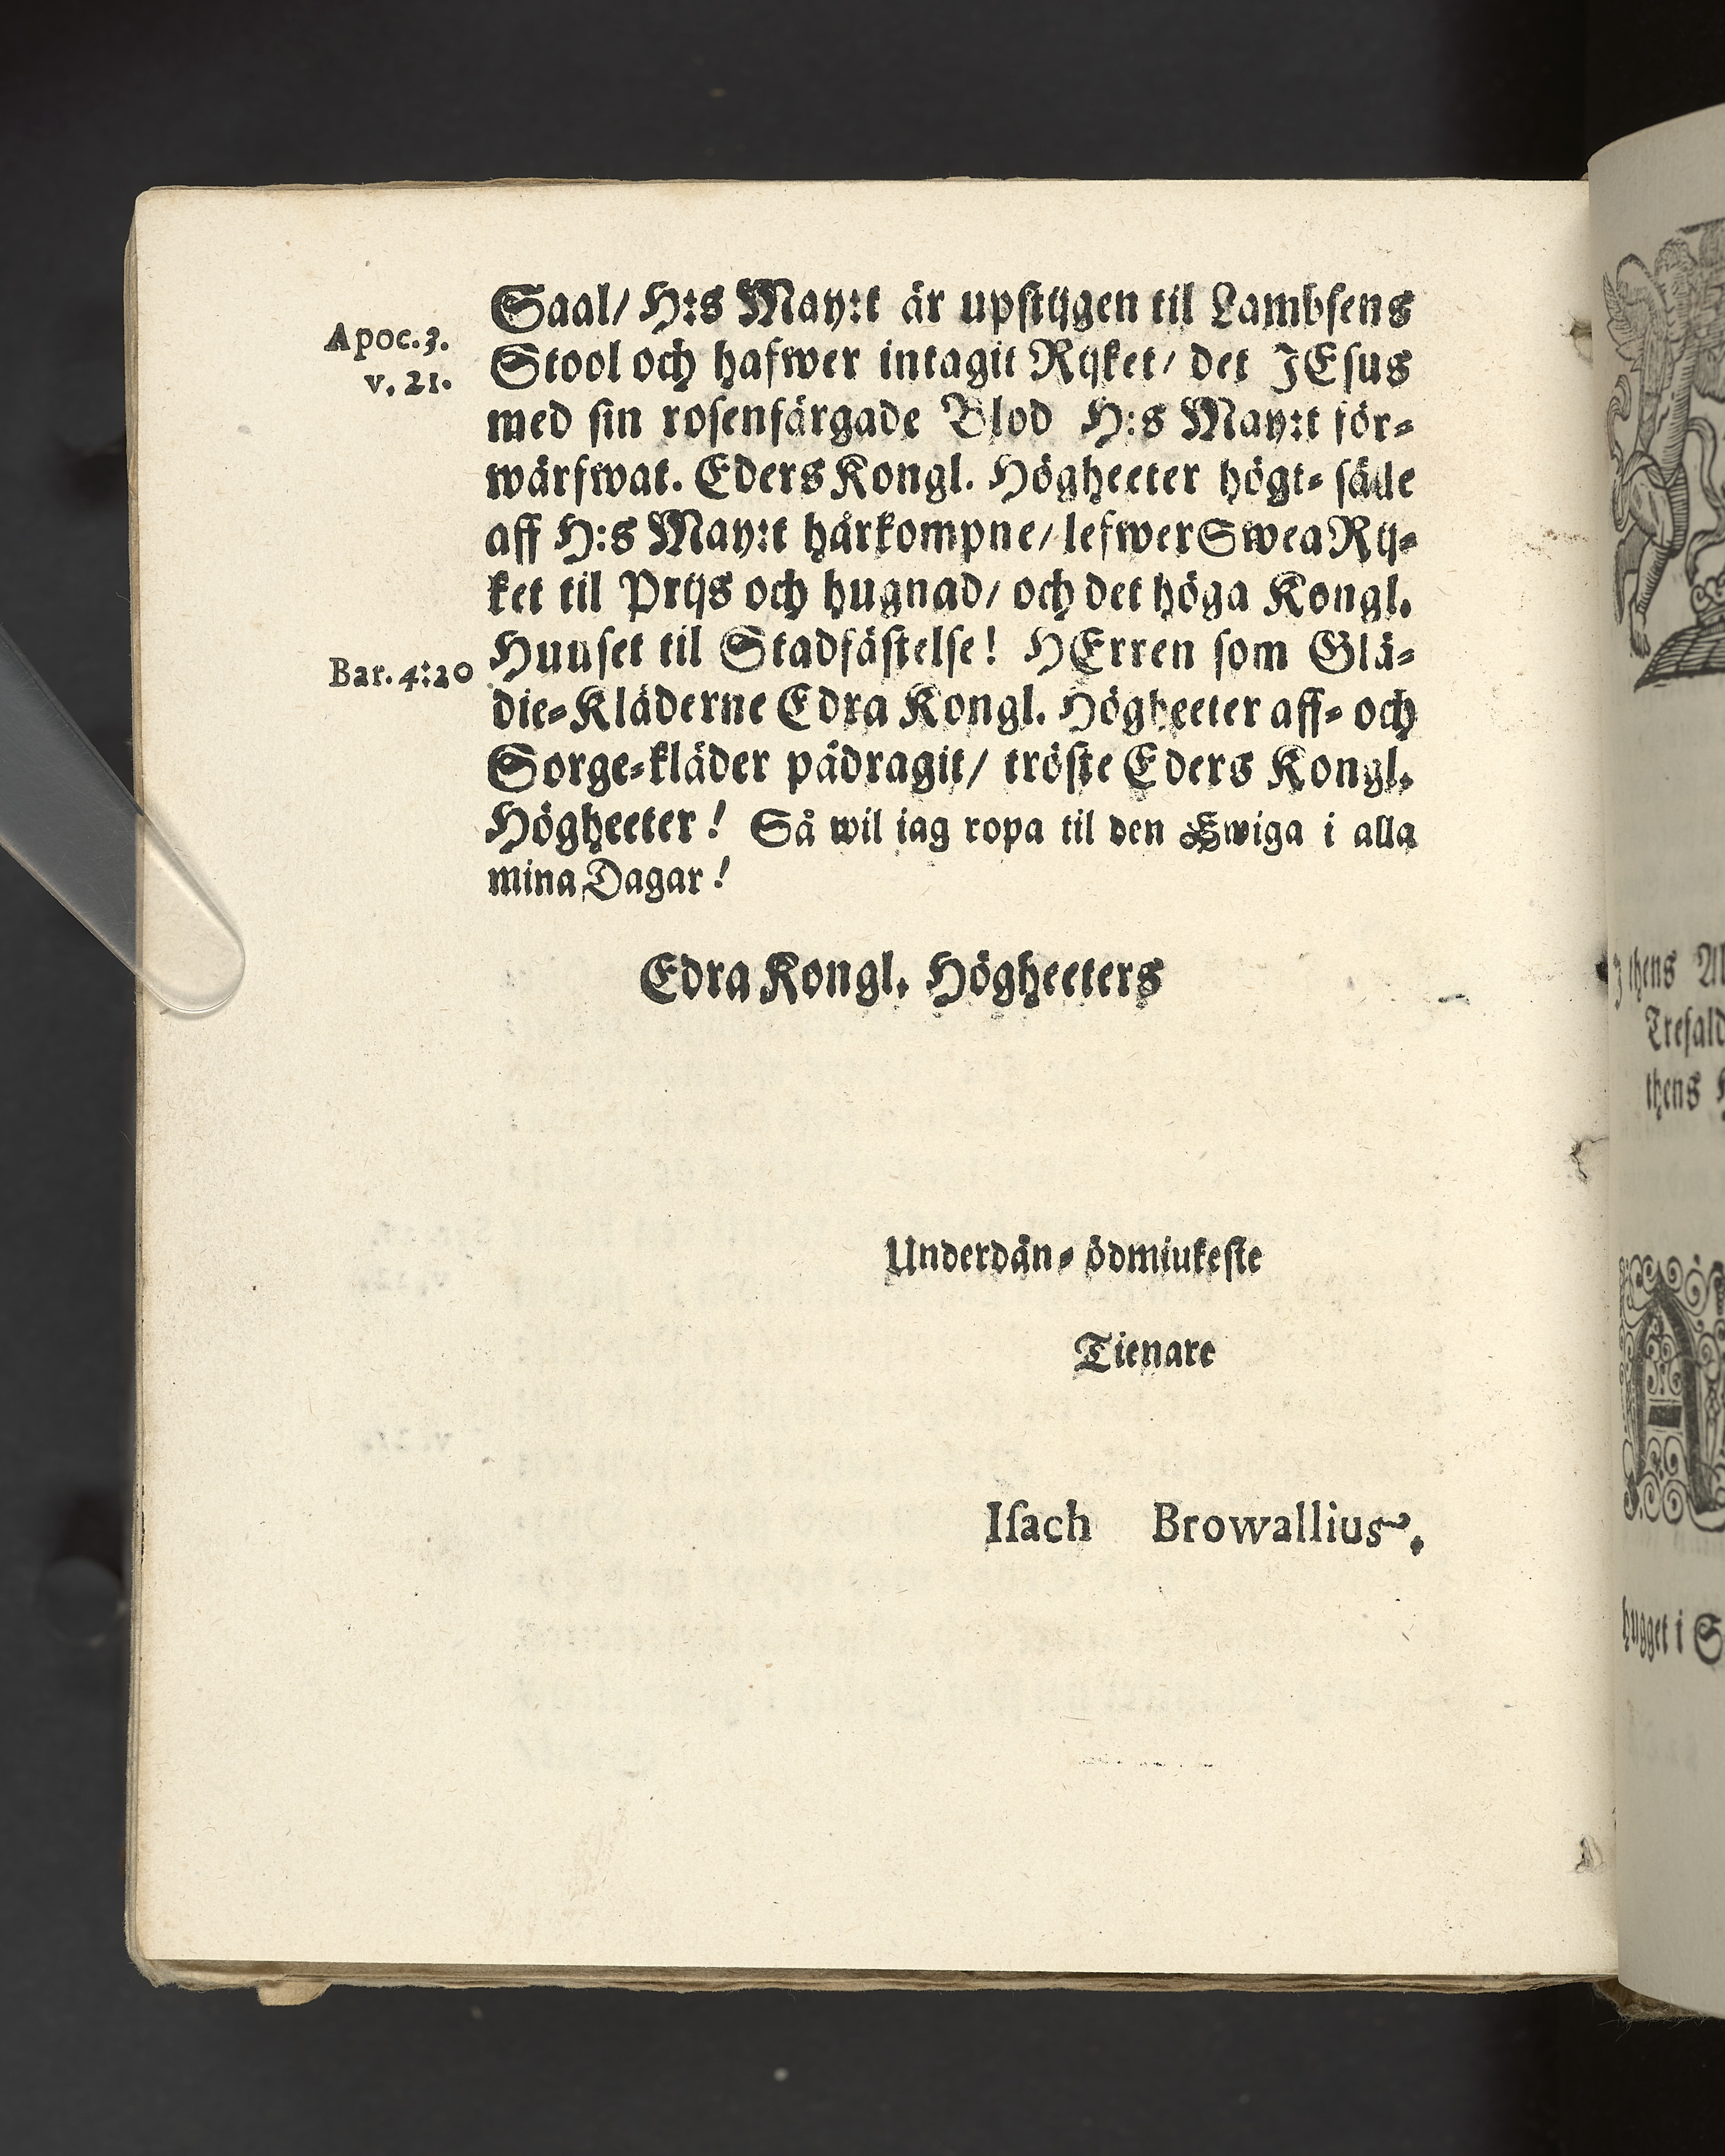 Apoc. 3.
v. 21.
Saal/ H:s May:t är upstijgen til Lambsens
Stool och hafwer intagit Rijket/ det JEsus
med sin rosenfärgade Blod H:s May:t för-
wärfwat. Eders Kongl. Högheeter högt- sälle
aff H:s May:t härkompne/ lefwer Swea Rij-
ket til Prijs och hugnad/ och det höga Kongl.
Bar. 4:20
Huuset til Stadfästelse! HErren som Glä-
die-Kläderne Edra Kongl. Högheeter aff- och
Sorge-kläder pådragit/ tröste Eders Kongl.
Högheeter! Så wil iag ropa til den Ewiga i alla
mina Dagar!
Edra Kongl. Högheeters
Underdån- ödmiukeste
Tienare
Isach Browallius.
thens
thens
hugget i